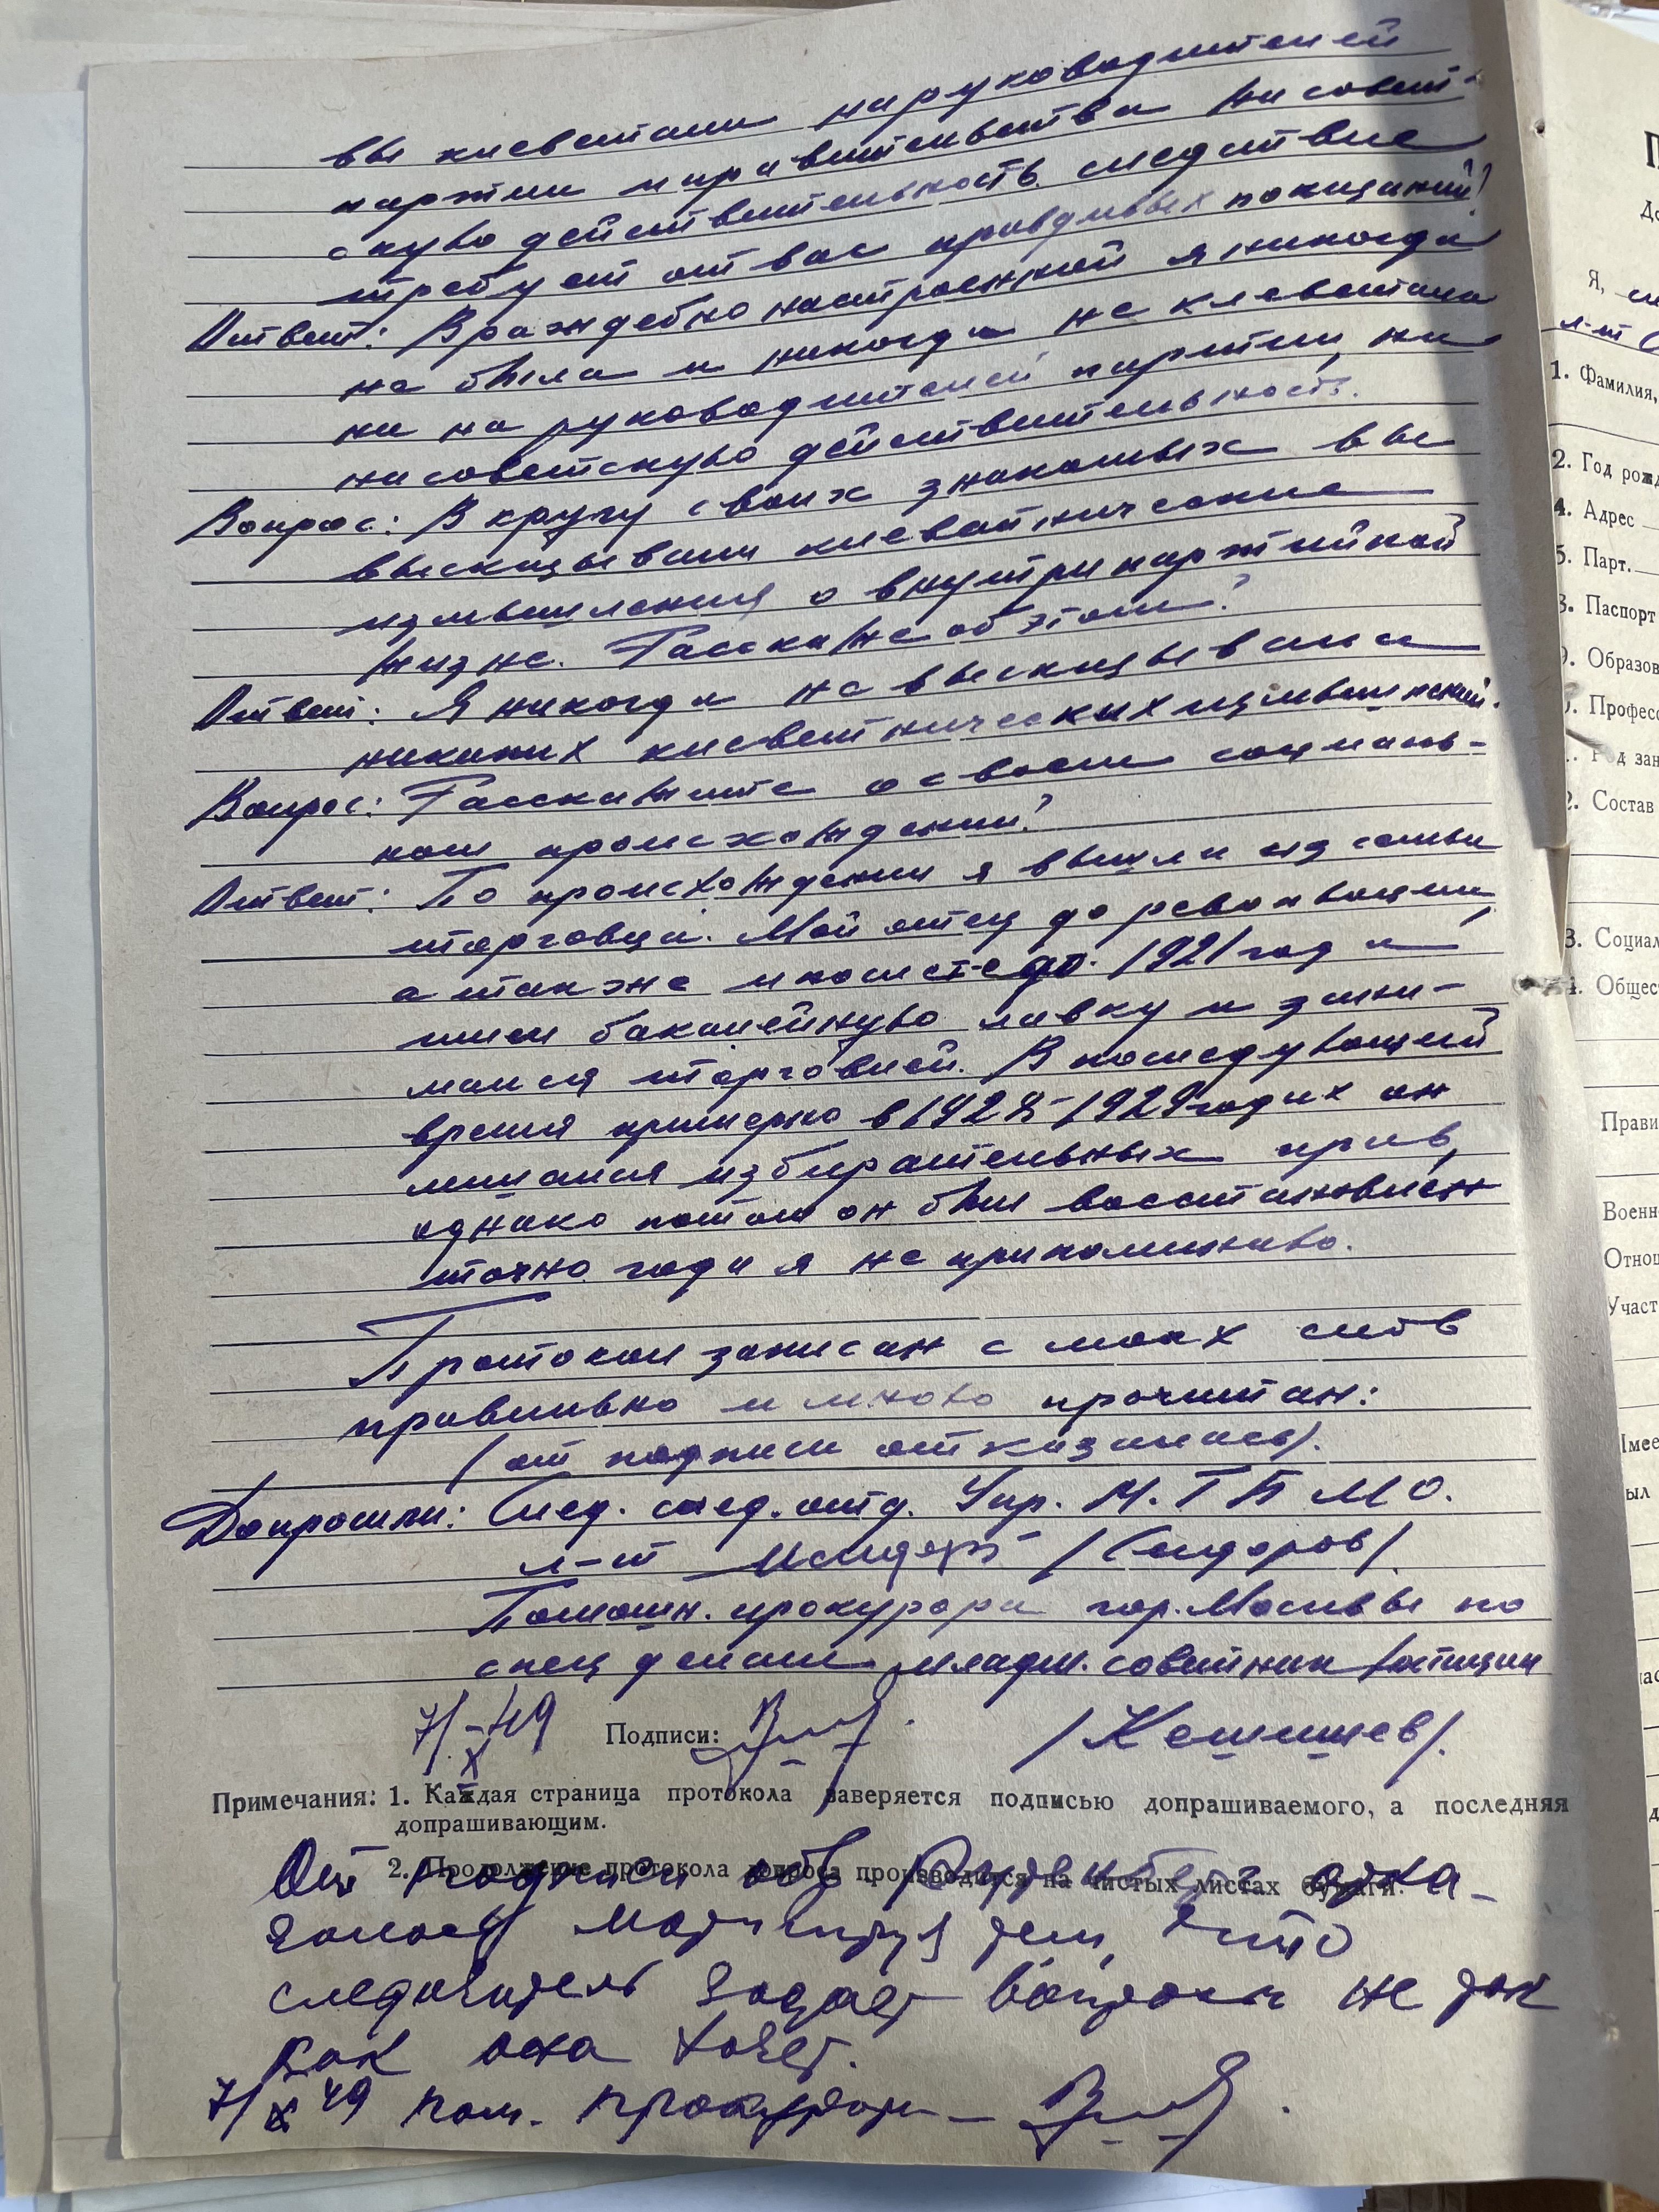 вы клеветали на руководителей
партии и правительства на совет-
скую действительность. Следствие
требует от вас правдивых показаний?
Ответ: Враждебно настроенной я никогда
не была и никогда не клеветала
ни на руководителей партии, ни
на советскую действительность.
Вопрос: В кругу своих знакомых вы
высказывали клеветнические
измышления о внутрипартийной
жизне. Расскажите об этом?
Ответ: Я никогда не высказывала
никаких клеветнических измышлений.
Вопрос: Расскажите о своем социаль-
ном происхождении?
Ответ: По происхождении я вышла из семьи
торговца. Мой отец до революции,
а также и после до 1921 года
имел бакалейную лавку и зани-
мался торговлей. В последующий
время примерно в 1928-1929 годах он
лишался избирательных прав,
однако потом он был восстановлен
точно года я не припоминаю.
Протокол записан с моих слов
правильно и мною прочитан:
(от подписи отказалась).
Допросили: След. след. отд. Упр. МГБ МО.
л-т /Сидоров/
Помошн. прокурора гор. Москвы по
спец делам младш. советник юстиции
7/X-49 Подписи: /Кешишев/.
Примечания: 1. Каждая страница протокола заверяется подписью допрашиваемого, а последняя
допрашивающим.
2. Продолжение протокола допроса производится на чистых листах бумаги.
От подписи обв. отка-
залась мотивируя тем, что
следователь задает вопросы не так
как она хочет.
7/X 49 пом. прокурора
Я,
л-т
1. Фамилия,
2. Год рожд
4. Адрес
5. Парт.
8. Паспорт
9. Образов
Професс
д зан
2. Состав
3. Социал
4. Общес
Прави
Военн
Отнош
Участ
Имее
был